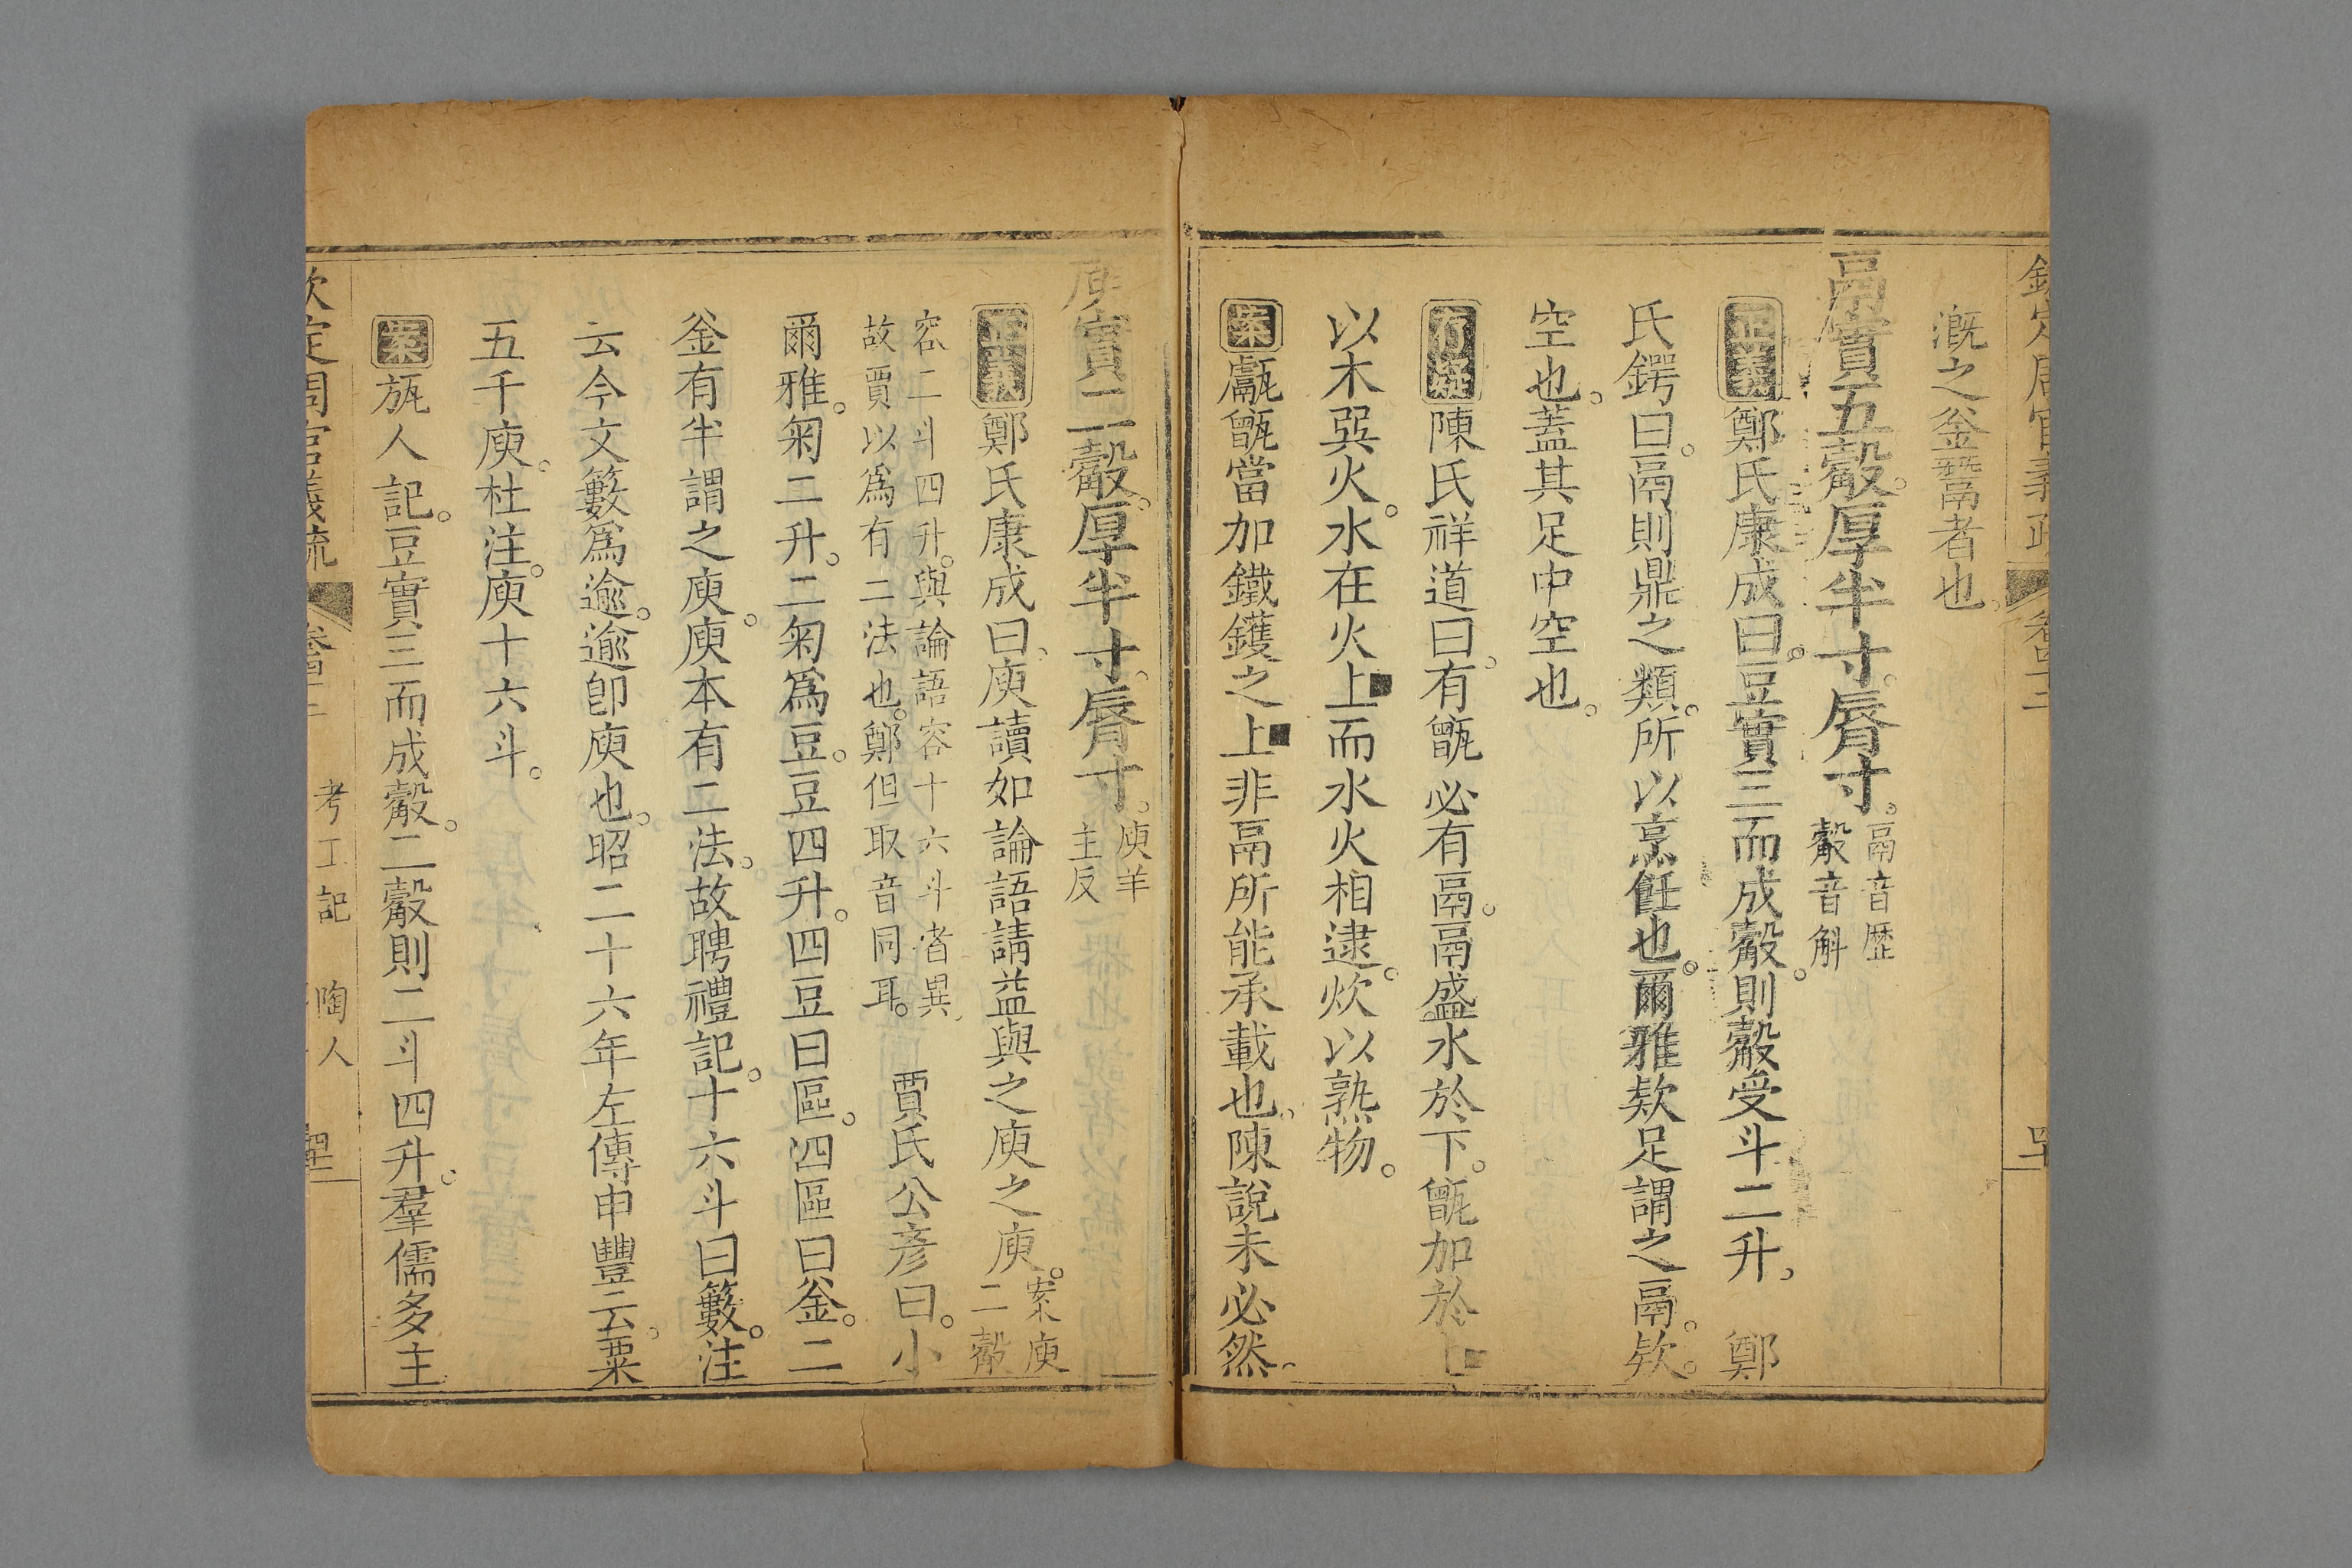 溉之釜鬵者也。
鬲實五觳。厚半寸。脣寸。鬲音歷
觳音斛
正義鄭氏康成曰。豆實三而成觳。則觳受斗二升。 鄭
氏鍔曰。鬲則鼎之類。所以烹飪也。爾雅款足謂之鬲。欵。
空也。蓋其足中空也。
存疑陳氏祥道曰。有甑必有鬲。鬲盛水於下。甑加於上
以木巽火。水在火上而水火相逮。炊以熟物。
案甗甑當加鐵鑊之上非鬲所能承載也。陳說未必然。
庾實二觳。厚半寸。脣寸。庾羊
主反
正義鄭氏康成曰。庾讀如論語請益與之庾之庾。案庾
二觳
容二斗四升。與論語容十六斗者異。
故賈以爲有二法也。鄭但取音同耳。 賈氏公彥曰。小
爾雅。匊二升。二匊爲豆。豆四升。四豆曰區。四區曰釜。二
釜有半謂之庾。庾本有二法。故聘禮記。十六斗曰籔。注
云今文籔爲逾。逾卽庾也。昭二十六年左傳申豐云。粟
五千庾。杜注。庾十六斗。
案瓬人記。豆實三而成觳。二觳則二斗四升。羣儒多主
欽定周官義疏
卷四十三
考工記 陶人